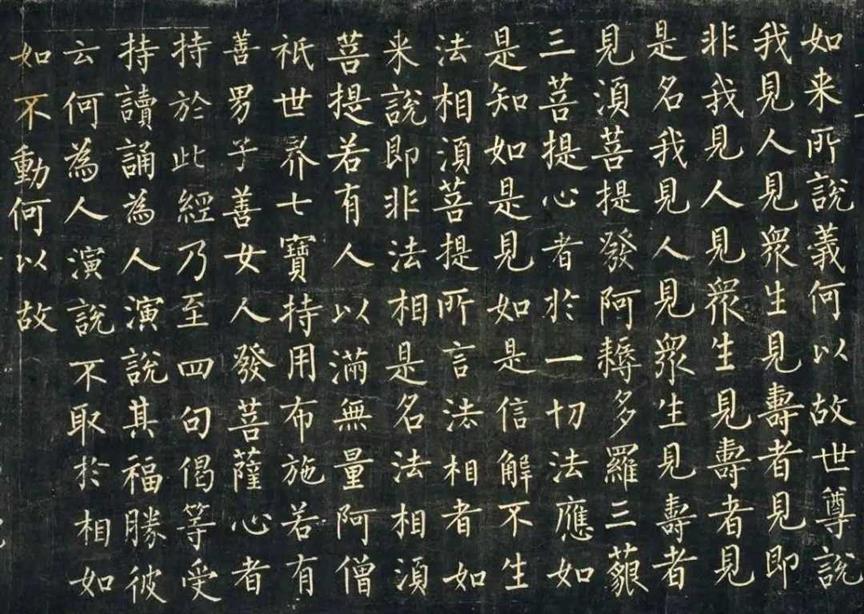 如来所說義何以故世尊說
我見人見眾生見壽者見即
非我見人見眾生見壽者見
是名我見人見眾生見壽者
見湏菩提發阿耨多羅三藐
三菩提心者於一切法應如
是知如是見如是信解不生
法相湏菩提所言法相者如
来說即非法相是名法相湏
菩提若有人以滿無量阿僧
祇世界七寶持用布施若有
善男子善女人發菩薩心者
持於此經乃至四句偈等受
持讀誦為人演說其福勝彼
云何為人演說不取於相如
如不動何以故